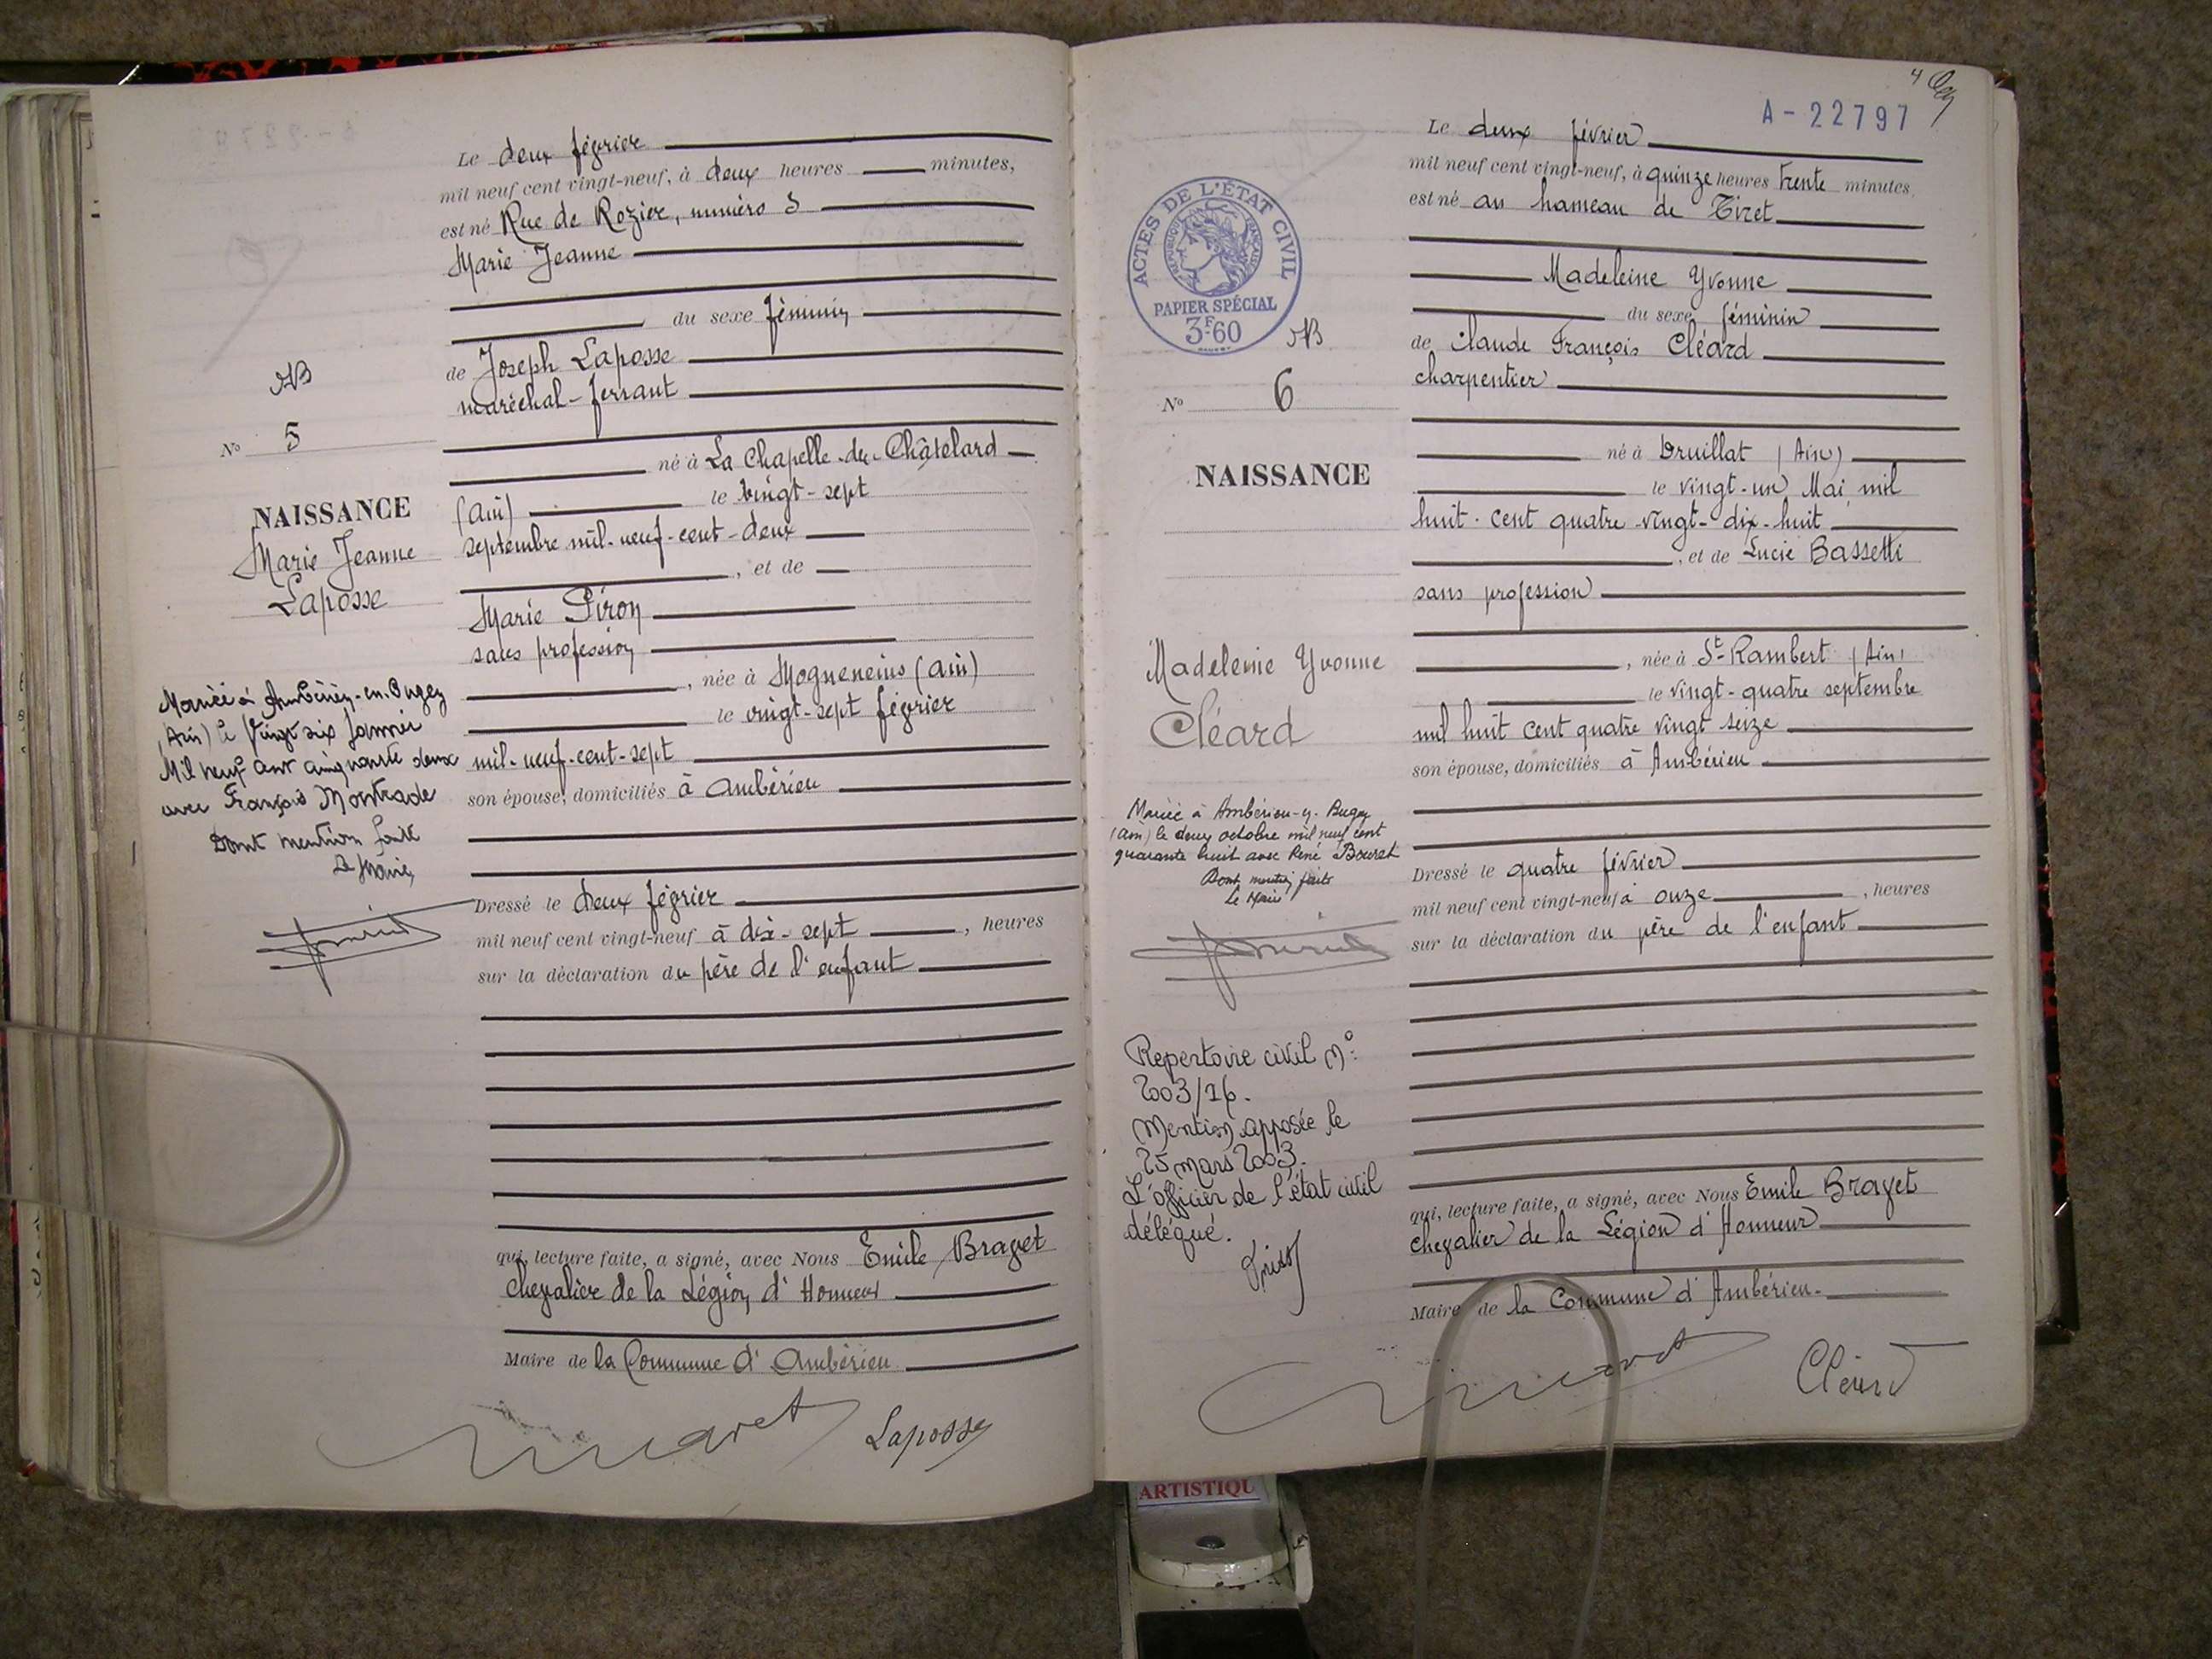 Le deux février
mil neuf cent vingt-neuf, à deux heures minutes,
est né Rue de Rozier, numéro 5
Marie Jeanne
du sexe féminin
de Joseph Laposse
maréchal-ferrant
né à La Chapelle-du-Châtelard
(Ain) le vingt-sept
septembre mil-neuf-cent-deux
, et de
Marie Piron
sans profession
, née à Mogneneins (Ain)
le vingt-sept février
mil-neuf-cent-sept
son épouse, domiciliés à Ambérieu
Dressé le deux février
mil neuf cent vingt-neuf à dix-sept , heures
sur la déclaration du père de l'enfant
qui, lecture faite, a signé, avec Nous Emile Bravet
chevalier de la Légion d'Honneur
Maire de la Commune d'Ambérieu
Laposse
No 5
NAISSANCE
Marie Jeanne
Laposse
Mariée à Ambérieu-en-Bugey
(Ain) le Vingt six Janvier
Mil neuf cent cinquante deux
avec François Montrade
Dont mention faite
Le Maire,
A-22797
4
Le deux février
mil neuf cent vingt-neuf, à quinze heures trente minutes
est né au hameau de Tiret
Madeleine Yvonne
du sexe féminin
de Claude François Cléard
charpentier
né à Druillat (Ain)
le vingt-un Mai mil
huit-cent quatre-vingt-dix-huit
, et de Lucie Bassetti
sans profession
, née à St-Rambert (Ain)
le vingt-quatre septembre
mil huit cent quatre vingt seize
son épouse, domiciliés à Ambérieu
Dressé le quatre février
mil neuf cent vingt-neuf à onze , heures
sur la déclaration du père de l'enfant
qui, lecture faite, a signé, avec Nous Emile Bravet
chevalier de la Légion d'Honneur
Maire de la Commune d'Ambérieu.
Cléard
ACTES DE L'ÉTAT CIVIL
RÉPUBLIQUE FRANÇAISE
PAPIER SPÉCIAL
3F.60
No 6
NAISSANCE
Madeleine Yvonne
Cléard
Mariée à Ambérieu-y-Bugey
(Ain) le deux octobre mil neuf cent
quarante huit avec René Bouret
Dont mention faite
Le Maire
Repertoire civil N°:
2003/16.
Mention apposée le
25 mars 2003.
L'officier de l'état civil
délégué.
ARTISTIQU